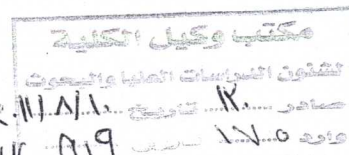 مكتب وكيل الكلية
لشئون الدراسات العليا والبحوث
صادر ١٢٠ تاريخ ١١/٨/١٠
وارد ١٧٠٥